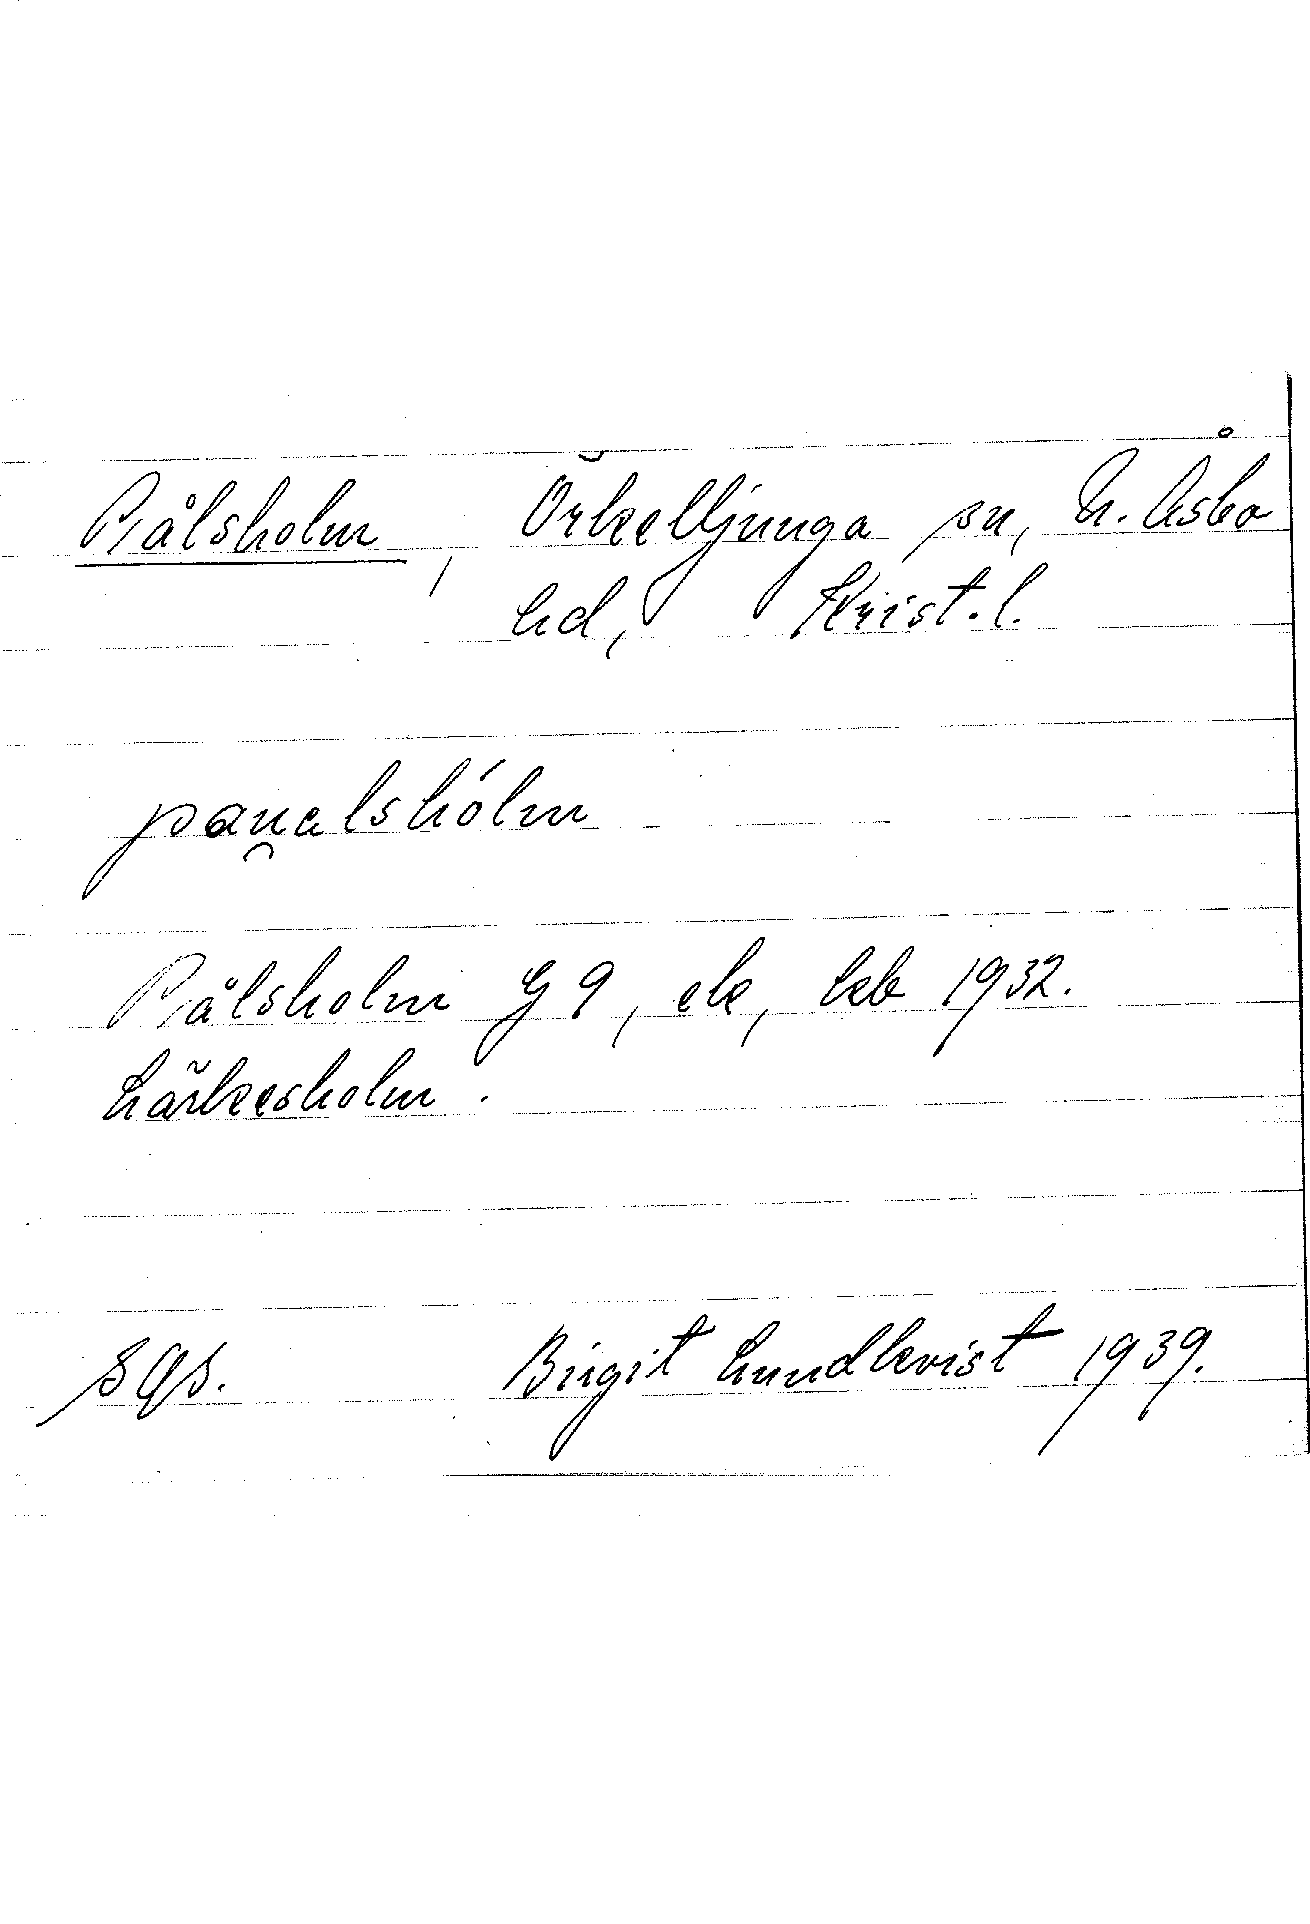 Pålsholm, Örkelljunga sn, N. Åsbo
hd, Krist. l.
pau̯alshólm
Pålsholm G 9, ek, kb 1932.
Lärkesholm.
SGS. Birgit Lundkvist 1939.